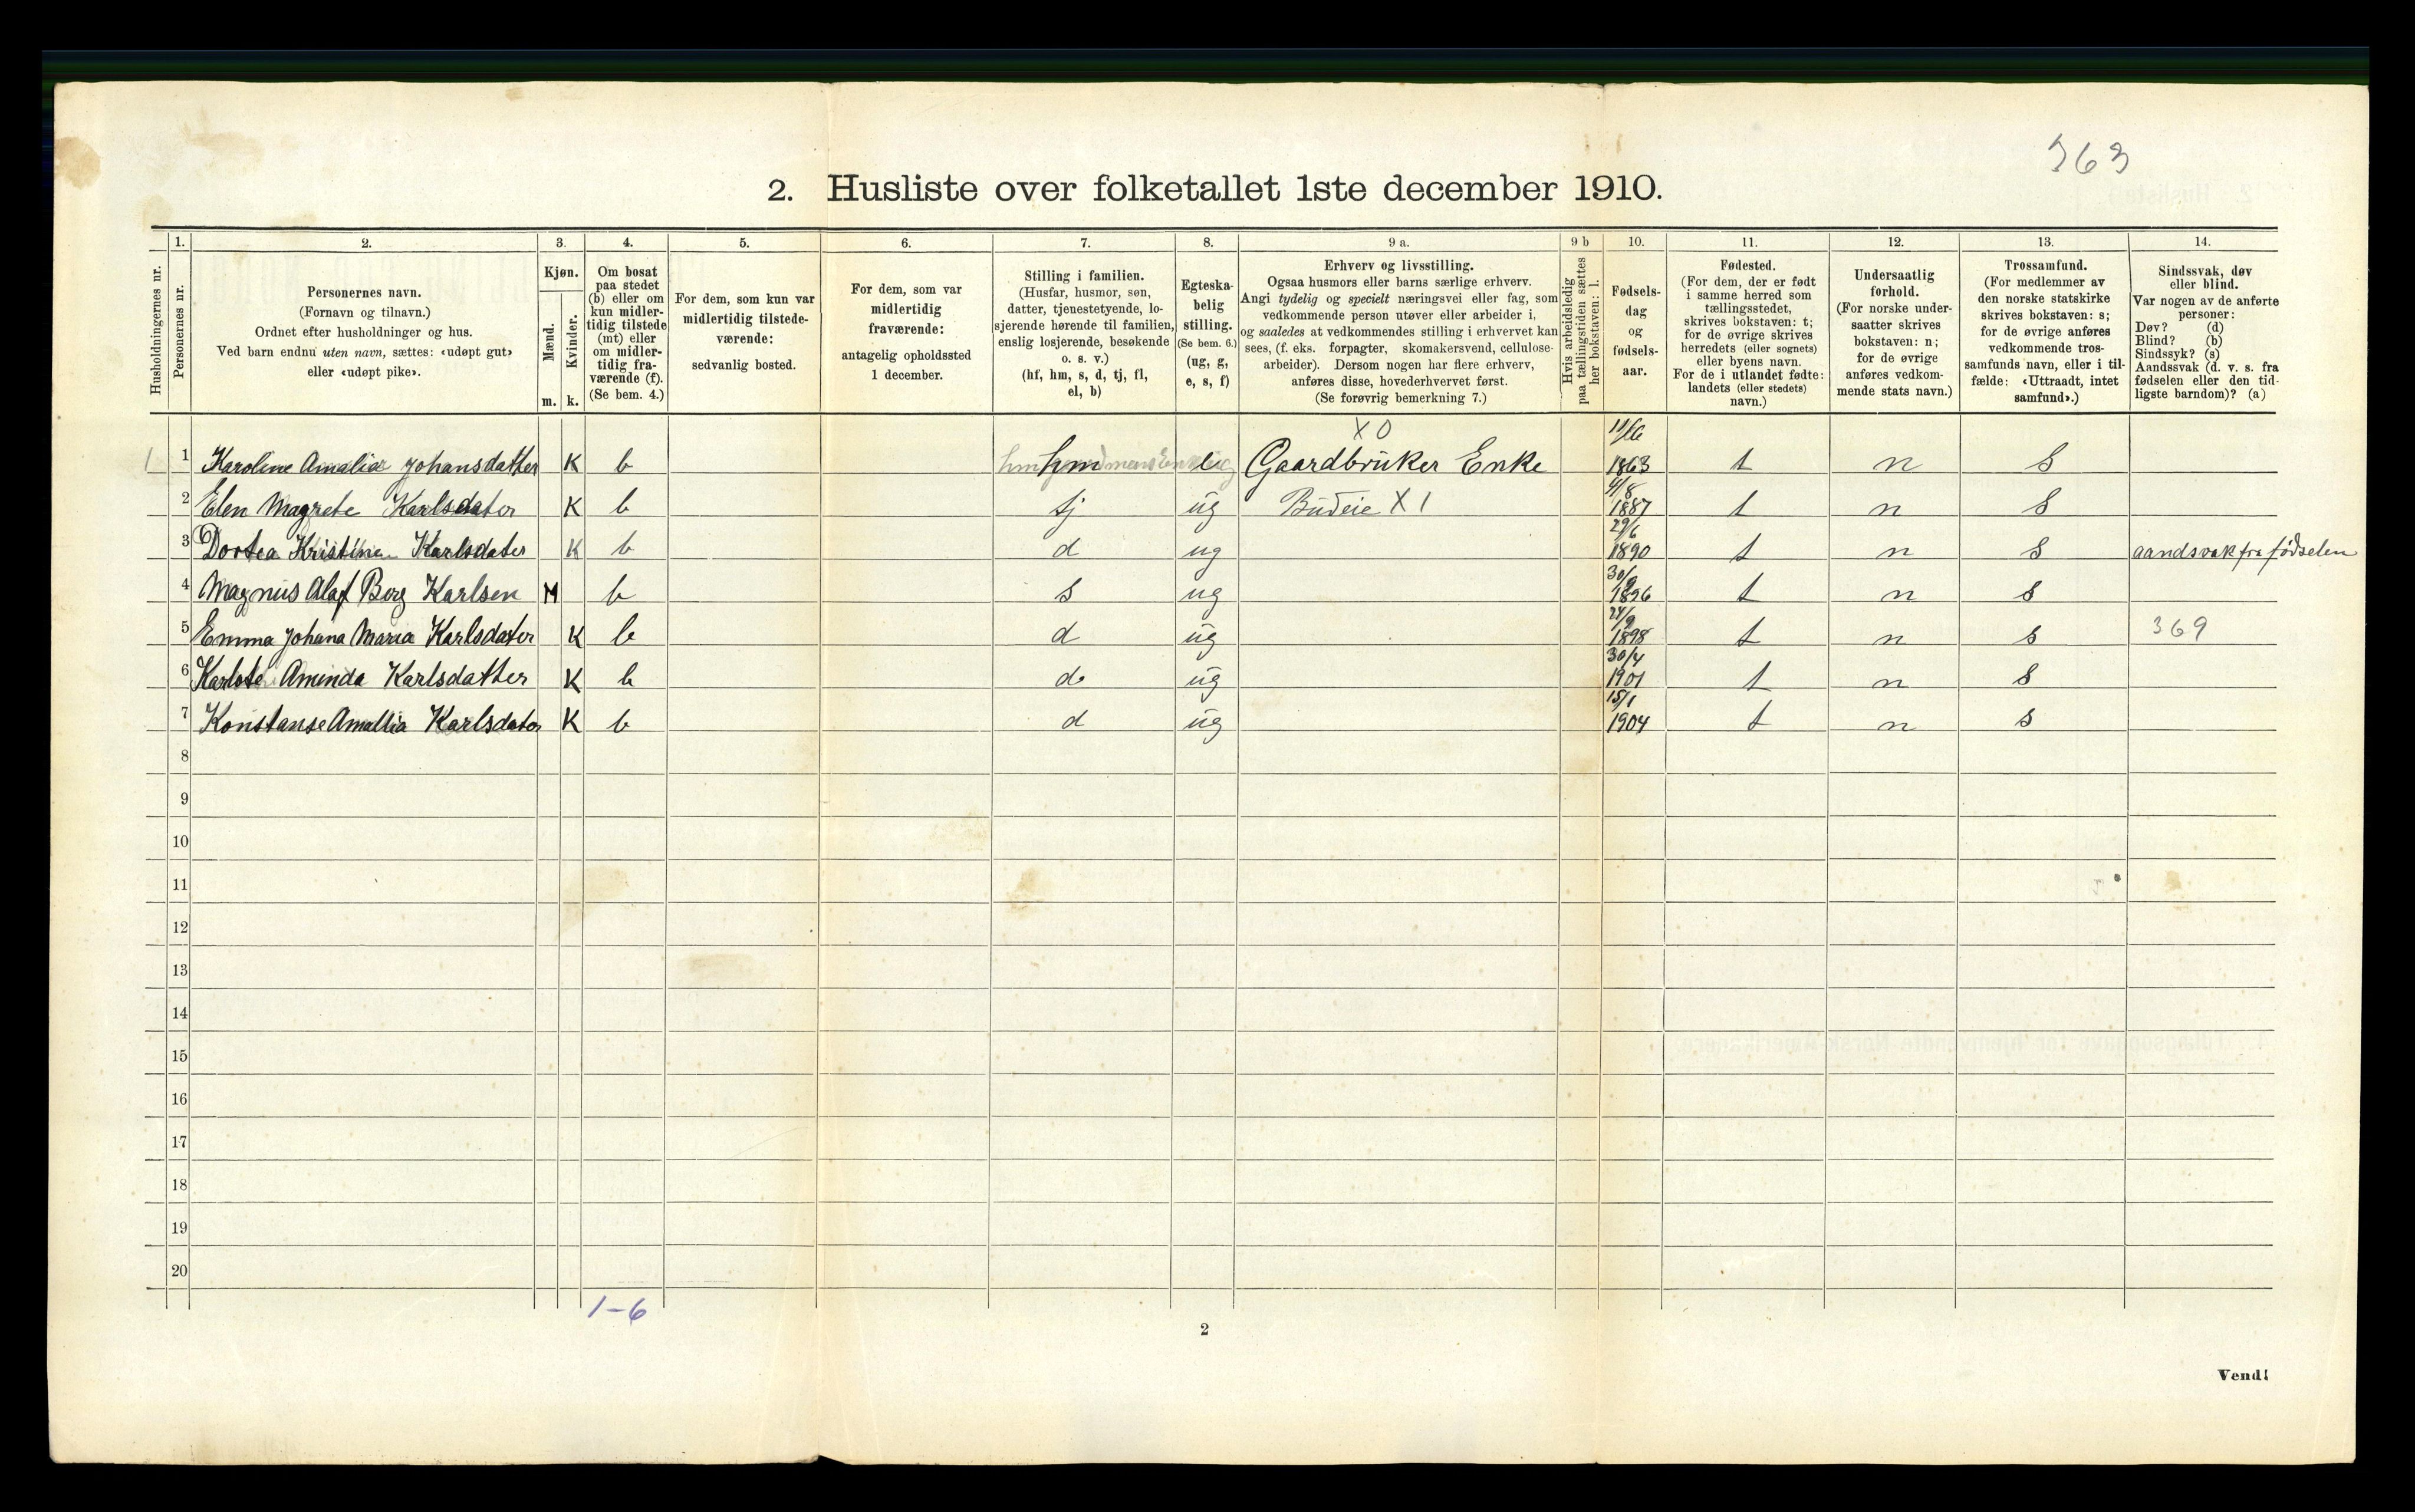 363
2. Husliste over folketallet 1ste december 1910.
Husholdningernes nr.
1.
Personernes nr.
2.
Personernes navn.
(Fornavn og tilnavn.)
Ordnet efter husholdninger og hus.
Ved barn endnu uten navn, sættes: «udøpt gut»
eller «udøpt pike».
3.
Kjøn.
Mænd.
Kvinder.
m. k.
4.
Om bosat
paa stedet
(b) eller om
kun midler-
tidig tilstede
(mt) eller
om midler-
tidig fra-
værende (f).
(Se bem. 4.)
5.
For dem, som kun var
midlertidig tilstede-
værende:
sedvanlig bosted.
6.
For dem, som var
midlertidig
fraværende:
antagelig opholdssted
1 december.
7.
Stilling i familien.
(Husfar, husmor, søn,
datter, tjenestetyende, lo-
sjerende hørende til familien,
enslig losjerende, besøkende
o. s. v.)
(hf, hm, s, d, tj, fl,
el, b)
8.
Egteska-
belig
stilling.
(Se bem. 6.)
(ug, g,
e, s, f)
9 a.
Erhverv og livsstilling.
Ogsaa husmors eller barns særlige erhverv.
Angi tydelig og specielt næringsvei eller fag, som
vedkommende person utøver eller arbeider i,
og saaledes at vedkommendes stilling i erhvervet kan
sees, (f. eks. forpagter, skomakersvend, cellulose-
arbeider). Dersom nogen har flere erhverv,
anføres disse, hovederhvervet først.
(Se forøvrig bemerkning 7.)
9 b
Hvis arbeidsledig
paa tællingstiden sættes
her bokstaven: l.
10.
Fødsels-
dag
og
fødsels-
aar.
11.
Fødested.
(For dem, der er født
i samme herred som
tællingsstedet,
skrives bokstaven: t;
for de øvrige skrives
herredets (eller sognets)
eller byens navn.
For de i utlandet fødte:
landets (eller stedets)
navn.)
12.
Undersaatlig
forhold.
(For norske under-
saatter skrives
bokstaven: n;
for de øvrige
anføres vedkom-
mende stats navn.)
13.
Trossamfund.
(For medlemmer av
den norske statskirke
skrives bokstaven: s;
for de øvrige anføres
vedkommende tros-
samfunds navn, eller i til-
fælde: «Uttraadt, intet
samfund».)
14.
Sindssvak, døv
eller blind.
Var nogen av de anførte
personer:
Døv? (d)
Blind? (b)
Sindssyk? (s)
Aandssvak (d. v. s. fra
fødselen eller den tid-
ligste barndom)? (a)
X 0 11/6
1 1 Karoline Amalie Johansdatter K b hm e Gaardbrüker Enke 1863 t n s
4/8
2 Elen Magrete Karlsdater K b tj ug Budeie X 1 1887 t n s
29/6
3 Dortea Kristine Karlsdater K b d ug 1890 t n s aandsvak fra fødselen
30/9
4 Magnus Alaf Berg Karlsen M b s ug 1896 t n s
24/9
5 Emma Johana Maria Karlsdater K b d ug 1898 t n s 369
30/4
6 Aminda Karlsdatter K b d ug 1901 t n s
15/1
7 Konstanse Amallia Karlsdater K b d ug 1904 t n s
8
9
10
11
12
13
14
15
16
17
18
19
20
1-6
2
Vend!